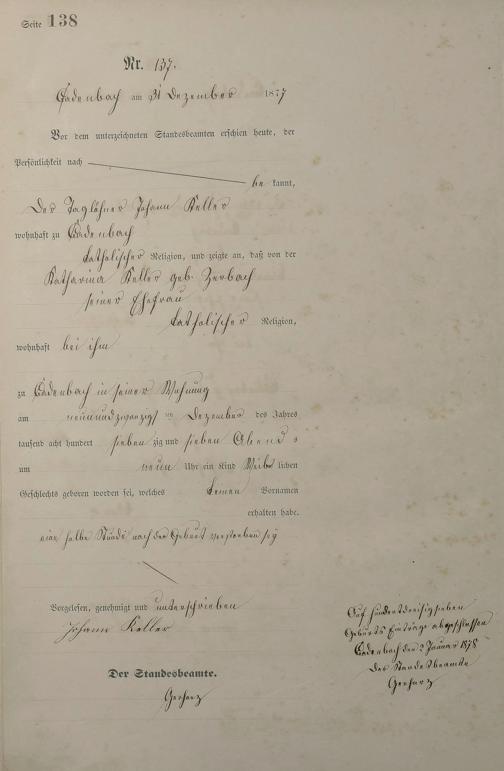 Seite 138
Nr. 137.
Cadenbach am 31 Dezember 1877
Vor dem unterzeichneten Standesbeamten erschien heute, der
Persönlichkeit nach
be kannt,
Der Taglöhner Johann Keller
wohnhaft zu Cadenbach
katholischer Religion, und zeigte an, daß von der
Katharina Keller geb. Zerbach
seiner Ehefrau
katholischer Religion,
wohnhaft bei ihm
zu Cadenbach in seiner Wohnung
am neunundzwanzigsten Dezember des Jahres
tausend acht hundert sieben zig und sieben Abends
um neun Uhr ein Kind Weib lichen
Geschlechts geboren worden sei, welches keinen Vornamen
erhalten habe.
eine halbe Stunde nach der Geburt verstorben sey
Vorgelesen, genehmigt und unterschrieben
Johann Keller
Der Standesbeamte.
Gerharz
Auf hundertdreisigsieben
Geburts Einträge abgeschlossen
Cadenbach den 2 Januar 1878
Der Standesbeamte
Gerharz